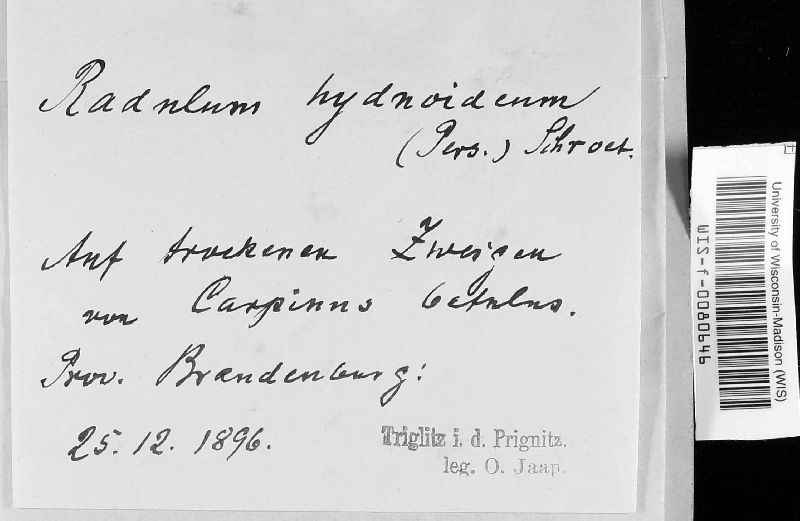 Radulum hydnoideum
(Pers.) Schroet.
Auf trockenen Zweigen
von Carpinus betulus.
Prov. Brandenburg:
25. 12. 1896.
Triglitz i. d. Prignitz.
leg. O. Jaap.
University of Wisconsin-Madison (WIS)
WIS-f-0080646